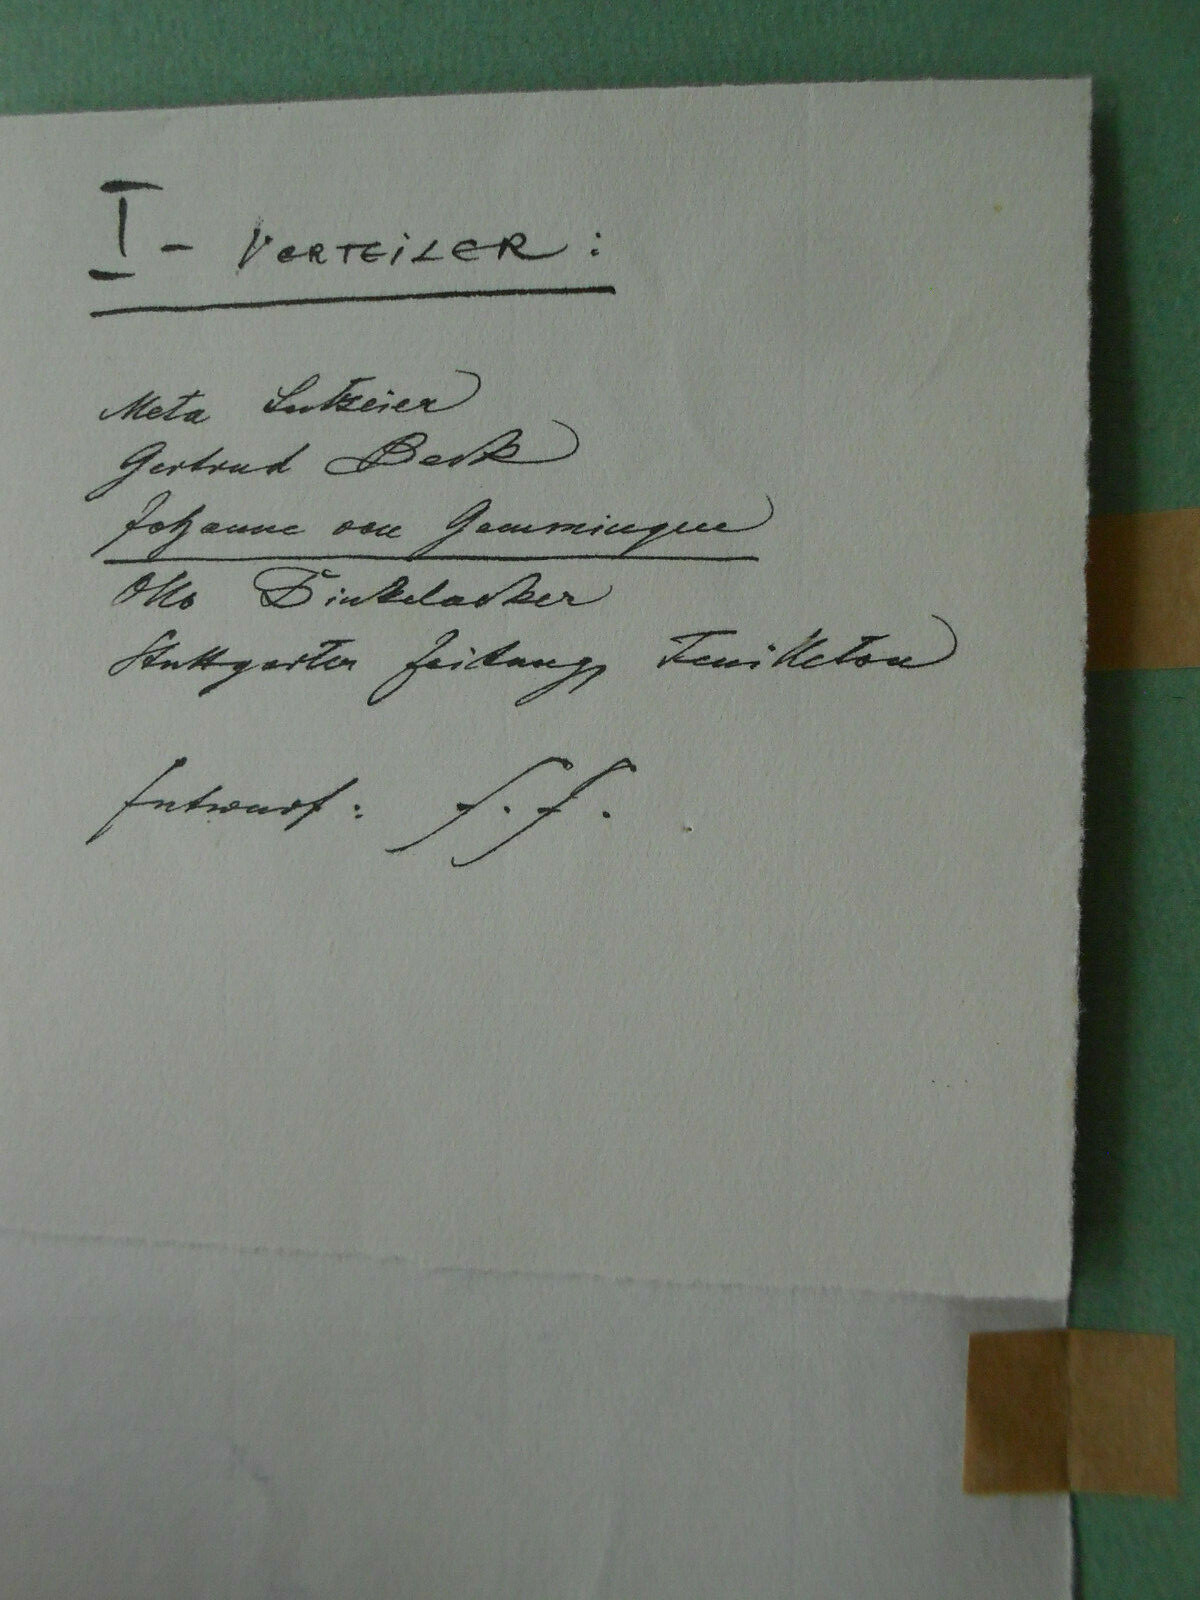 I - VERTEILER:
Meta Lutzeier
Gertrud Beck
Johanne von Gemmingen
Otto Dinkelacker
Stuttgarter Zeitung, Feuilleton
Entwurf: f. f.